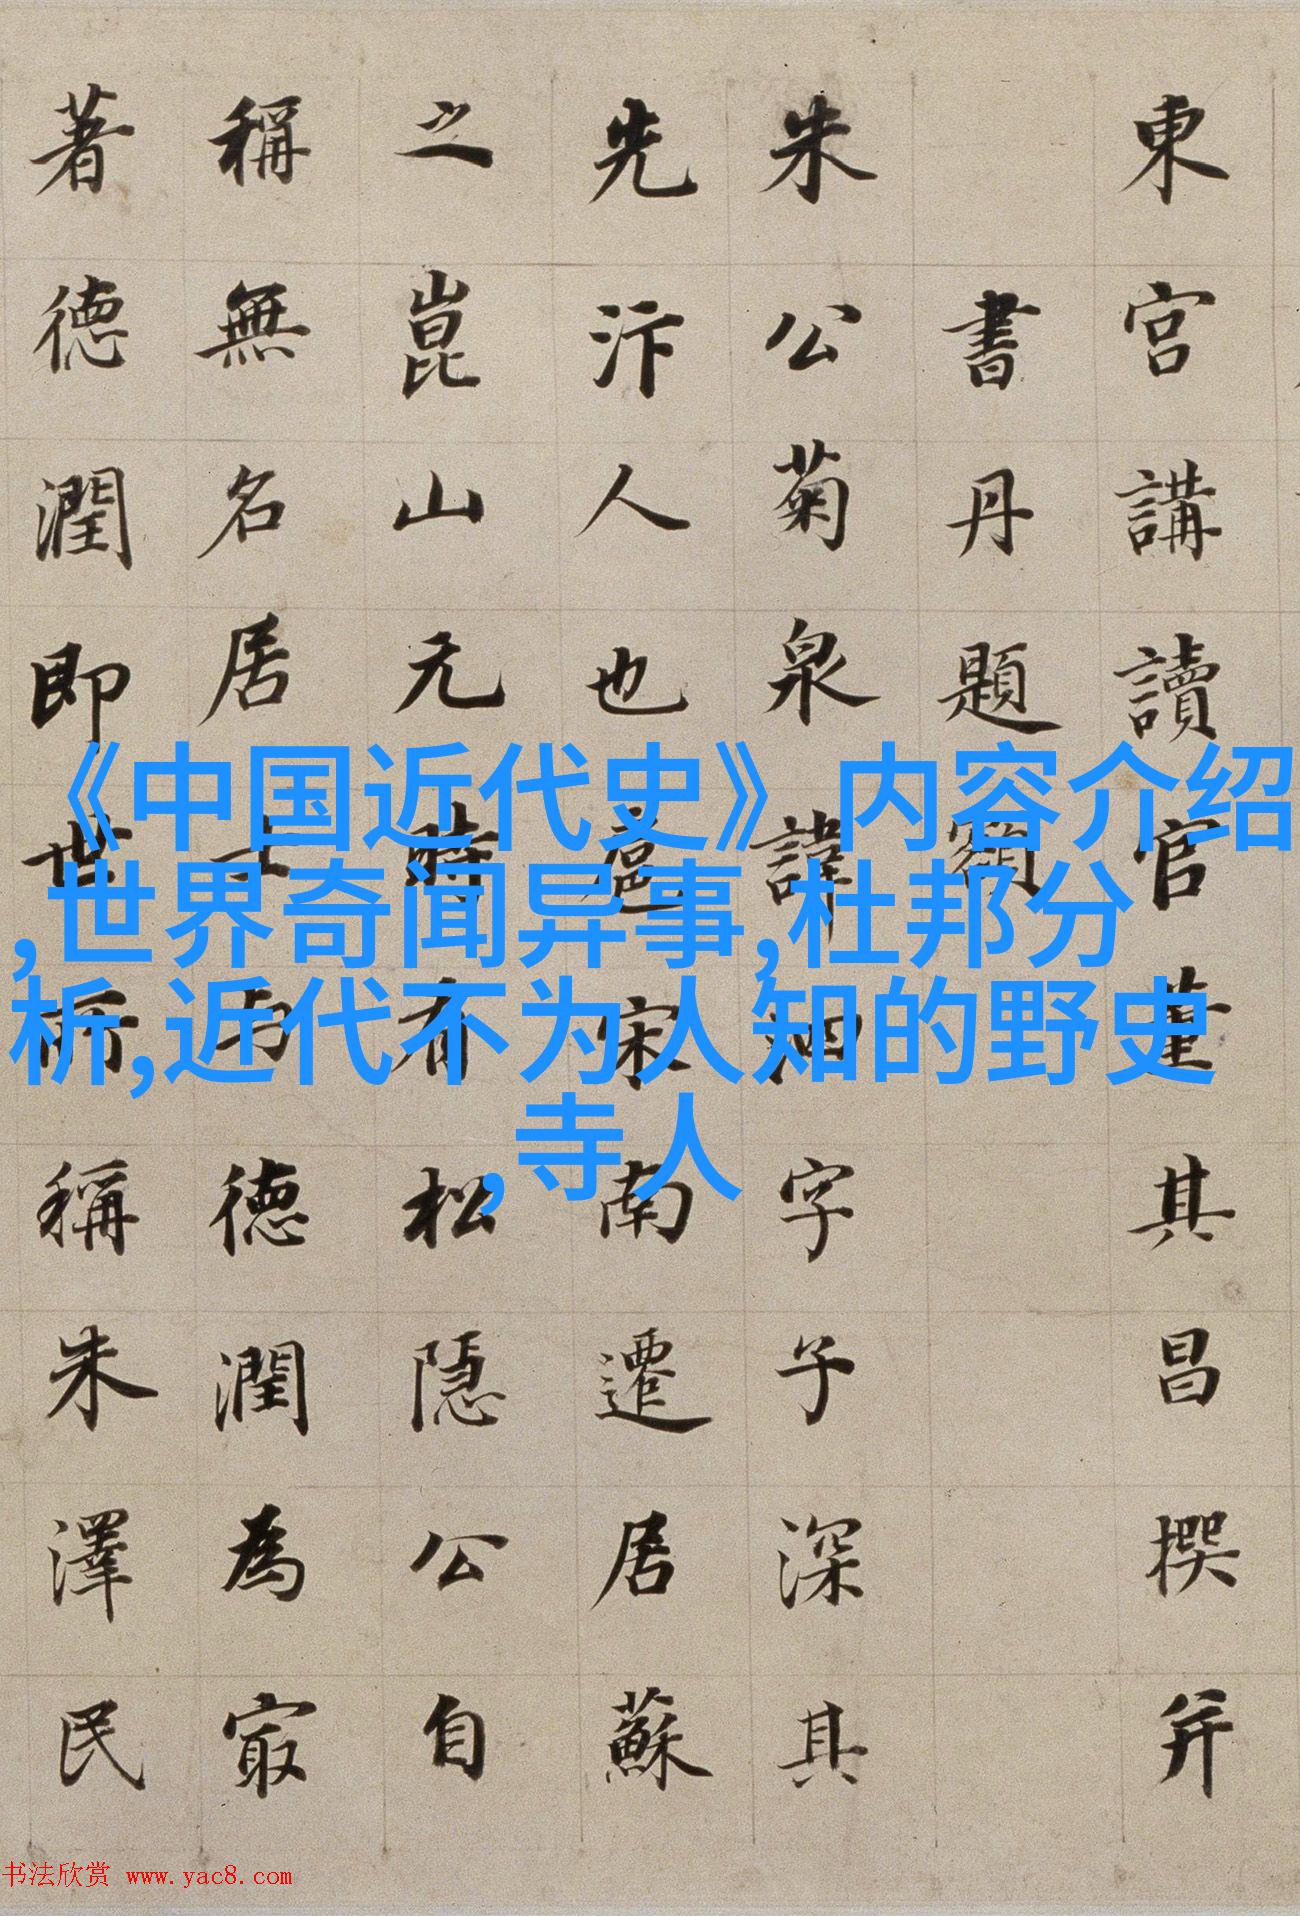 東宮講讀官董其昌撰并
書丹題額
朱公菊泉諱泗字子深其
先汴人也扈宋南遷居蘇
之崑山元時有松隱公自
稱無名居士与德潤為㝡
著德潤即世所稱朱澤民
《中国近代史》内容介绍
,世界奇闻异事,杜邦分
析,近代不为人知的野史
,寺人
书法欣赏 www.yac8.com